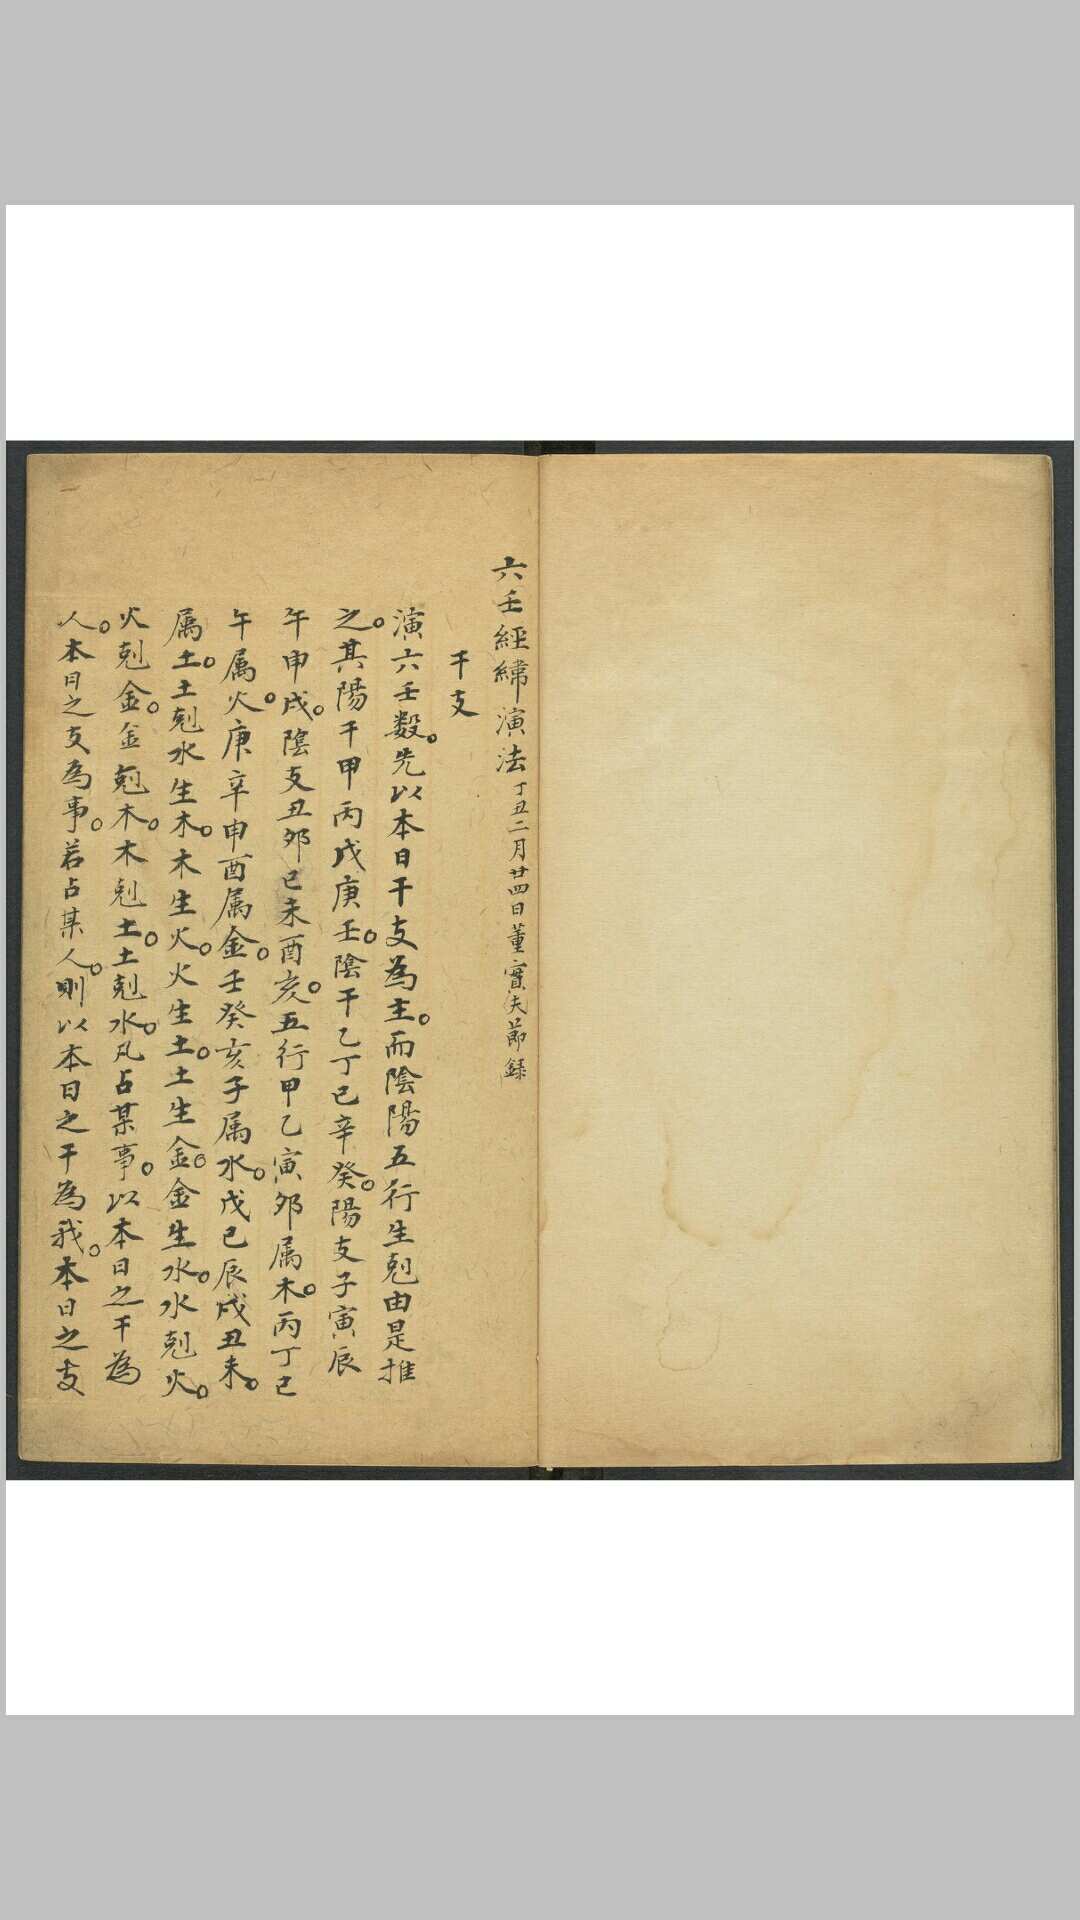 六壬經緯演法丁丑二月廿四日董實夫節錄
干支
演六壬数。先以本日干支為主。而陰陽五行生剋由是推
之。其陽干甲丙戊庚壬。陰干乙丁己辛癸。陽支子寅辰
午申戌。陰支丑卯巳未酉亥。五行甲乙寅卯属木。丙丁巳
午属火。庚辛申酉属金。壬癸亥子属水。戊己辰戌丑未。
属土。土剋水生木。木生火。火生土。土生金。金生水。水剋火。
火剋金。金剋木。木剋土。土剋水。凡占某事。以本日之干為
人。本日之支為事。若占某人。則以本日之干為我。本日之支